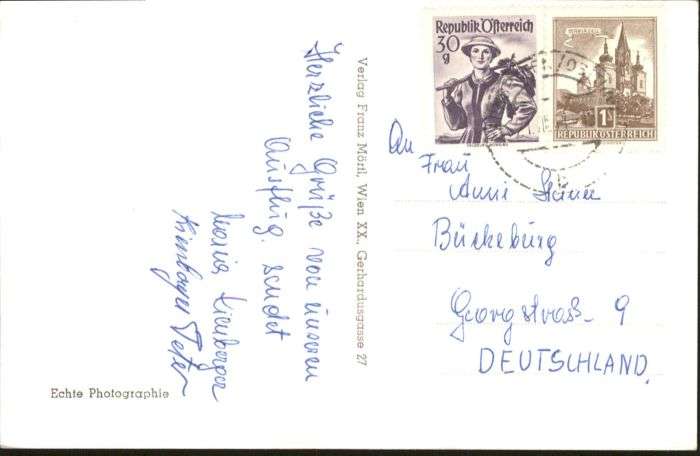 Herzliche Grüße von unseren
Ausflug. sendet
Maria Kienberger
Kienberger Peter
Verlag Franz Mörtl, Wien XX., Gerhardusgasse 27
Echte Photographie
Republik Österreich
30
g
MARIAZELL
1S
REPUBLIK ÖSTERREICH
An
Frau
Anni
Bückeburg
Georgstraß- 9
DEUTSCHLAND.